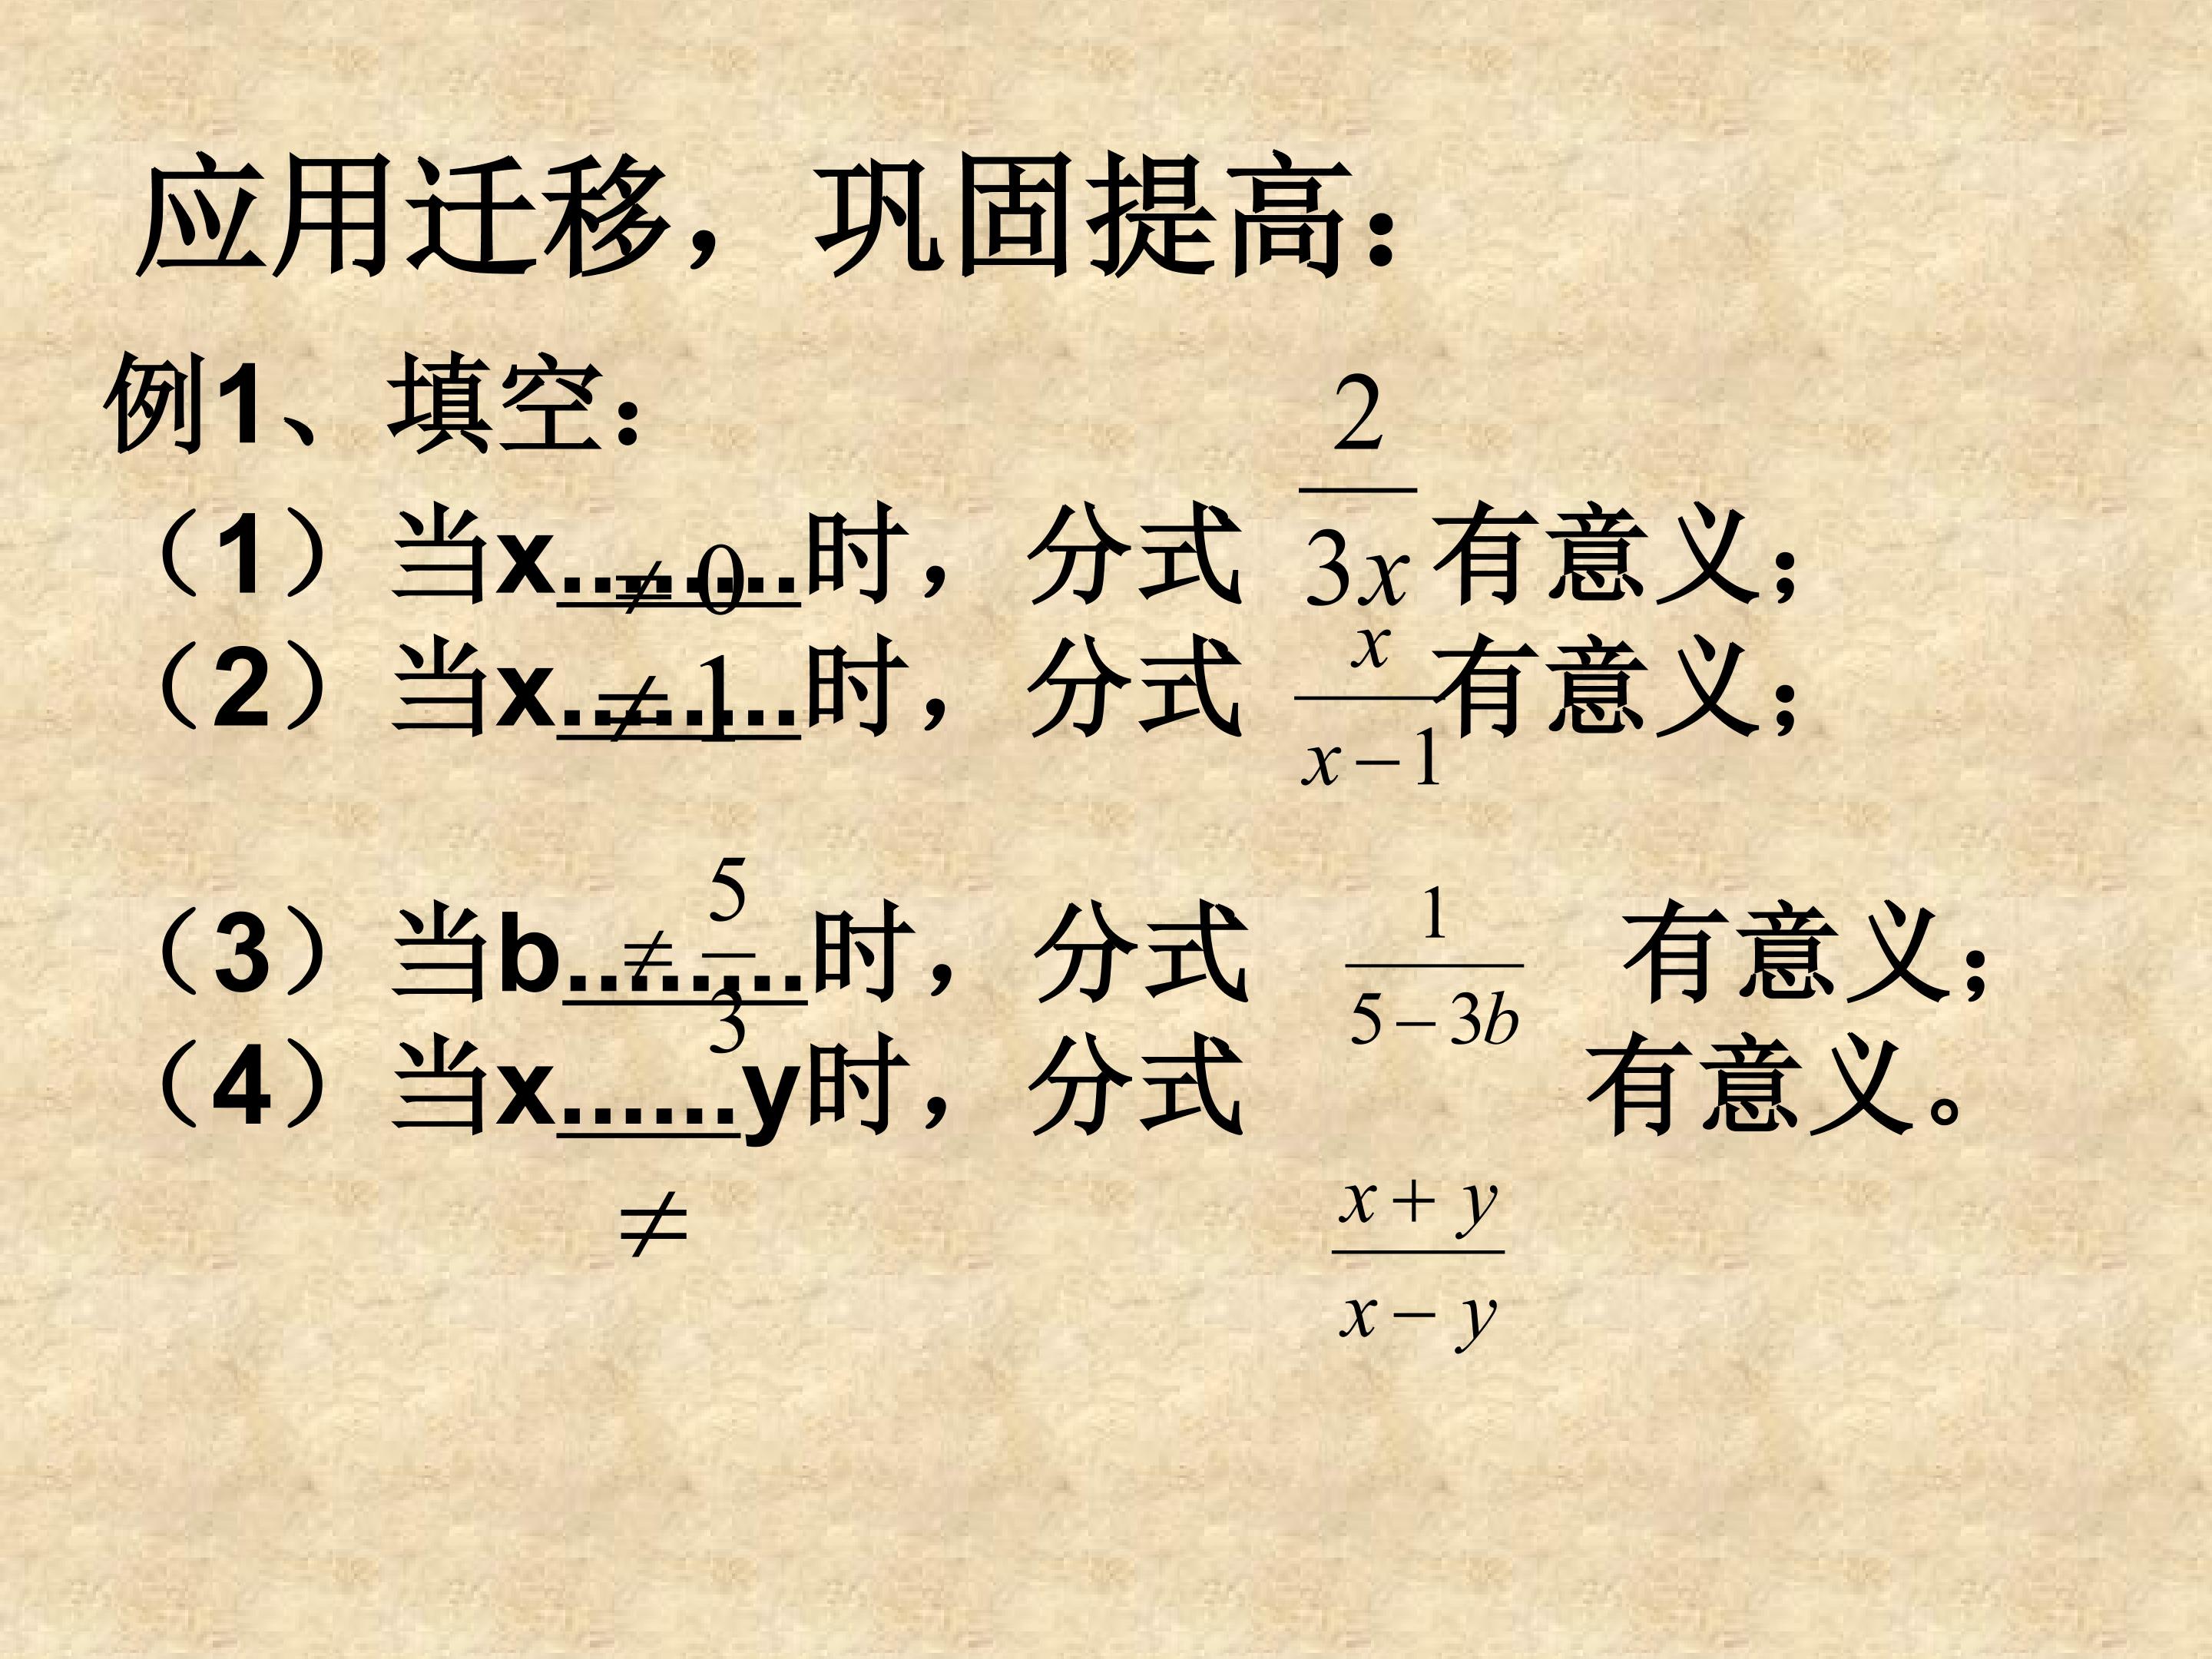 应用迁移，巩固提高：
例1、填空：
（1）当x ≠ 0 时，分式 2/3x 有意义；
（2）当x ≠ 1 时，分式 x/(x−1) 有意义；
（3）当b ≠ 5/3 时，分式 1/(5−3b) 有意义；
（4）当x......y时，分式 有意义。
≠ (x+y)/(x−y)